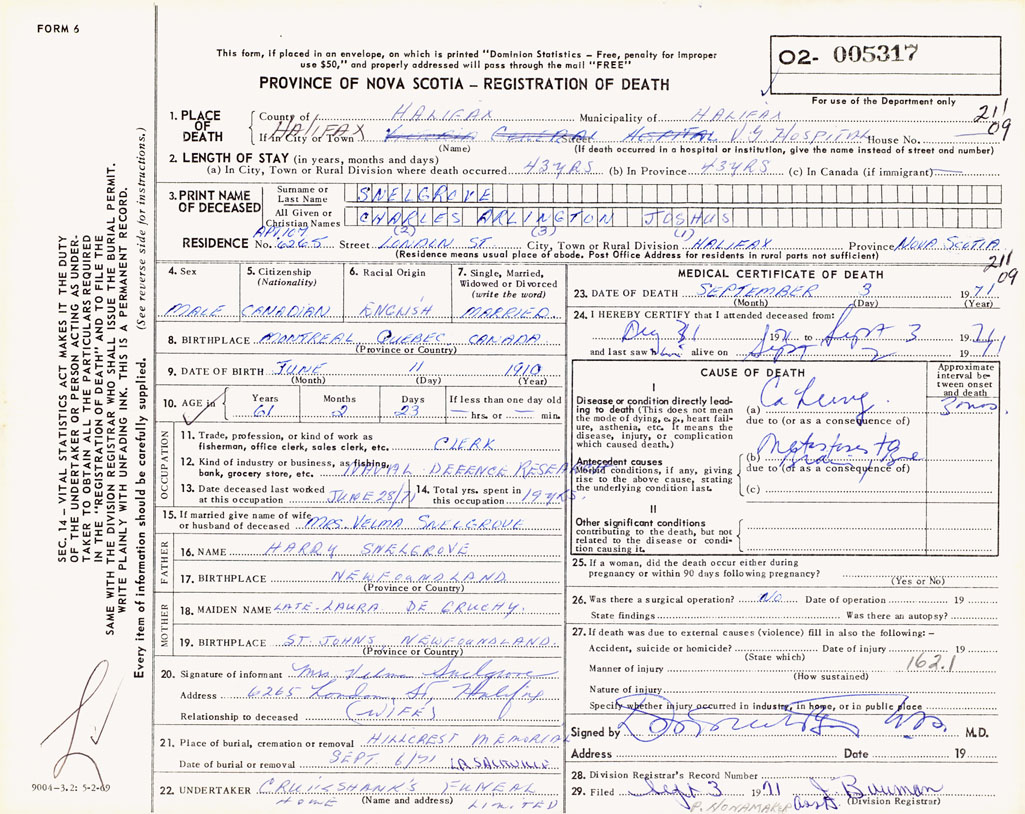 FORM 6
This form, if placed in an envelope, on which is printed "Dominion Statistics – Free, penalty for improper
use $50," and properly addressed will pass through the mail "FREE"
PROVINCE OF NOVA SCOTIA – REGISTRATION OF DEATH
O2- 005317
For use of the Department only
211
09
1. PLACE OF DEATH
County of HALIFAX Municipality of HALIFAX
If in City or Town HALIFAX Street V.G HOSPITAL House No.
(Name) (If death occurred in a hospital or institution, give the name instead of street and number)
2. LENGTH OF STAY (in years, months and days)
(a) In City, Town or Rural Division where death occurred 43 YRS (b) In Province 43 YRS (c) In Canada (if immigrant) —
3. PRINT NAME OF DECEASED
Surname or Last Name SNELGROVE
All Given or Christian Names CHARLES ARLINGTON JOSHUS
(2) (3) (1)
RESIDENCE No. 6265 Street LONDON ST City, Town or Rural Division HALIFAX Province NOVA SCOTIA
(Residence means usual place of abode. Post Office Address for residents in rural parts not sufficient)
211
09
4. Sex
MALE
5. Citizenship (Nationality)
CANADIAN
6. Racial Origin
ENGLISH
7. Single, Married, Widowed or Divorced (write the word)
MARRIED
8. BIRTHPLACE MONTREAL QUEBEC CANADA
(Province or Country)
9. DATE OF BIRTH JUNE 11 1910
(Month) (Day) (Year)
10. AGE in Years Months Days If less than one day old
61 2 23 — hrs. or — min.
OCCUPATION
11. Trade, profession, or kind of work as
fisherman, office clerk, sales clerk, etc. CLERK
12. Kind of industry or business, as fishing,
bank, grocery store, etc. NAVAL DEFENCE RESEARCH
13. Date deceased last worked at this occupation JUNE 28/71
14. Total yrs. spent in this occupation 19 YRS.
15. If married give name of wife
or husband of deceased MRS. VELMA SNELGROVE
FATHER
16. NAME HARRY SNELGROVE
17. BIRTHPLACE NEWFOUNDLAND
(Province or Country)
MOTHER
18. MAIDEN NAME LATE- LAURA DE GRUCHY.
19. BIRTHPLACE ST. JOHNS NEWFOUNDLAND.
(Province or Country)
20. Signature of informant Mrs. Velma Snelgrove
Address 6265 London St, Halifax
Relationship to deceased (WIFE)
21. Place of burial, cremation or removal HILLCREST MEMORIAL
Date of burial or removal SEPT 6/71
22. UNDERTAKER CRUIKSHANK'S FUNERAL
HOME (Name and address) LIMITED
MEDICAL CERTIFICATE OF DEATH
23. DATE OF DEATH SEPTEMBER 3 1971
(Month) (Day) (Year)
24. I HEREBY CERTIFY that I attended deceased from:
31 19 to Sept 3 1971
and last saw him alive on Sept 2 1971
CAUSE OF DEATH
Approximate interval between onset and death
I
Disease or condition directly leading to death (This does not mean the mode of dying, e.g., heart failure, asthenia, etc. It means the disease, injury, or complication which caused death.)
(a) Ca Lung. 3 mos.
due to (or as a consequence of)
Antecedent causes
Morbid conditions, if any, giving rise to the above cause, stating the underlying condition last.
(b) Metastases to
due to (or as a consequence of)
(c)
II
Other significant conditions contributing to the death, but not related to the disease or condition causing it.
25. If a woman, did the death occur either during
pregnancy or within 90 days following pregnancy?
(Yes or No)
26. Was there a surgical operation? NO Date of operation 19
State findings Was there an autopsy?
27. If death was due to external causes (violence) fill in also the following:–
Accident, suicide or homicide? Date of injury 19
(State which)
Manner of injury 162.1
(How sustained)
Nature of injury
Specify whether injury occurred in industry, in home, or in public place
Signed by M.D.
Address Date 19
28. Division Registrar's Record Number
29. Filed Sept 3 1971 J. Bauman
(Division Registrar)
SEC. 14 – VITAL STATISTICS ACT MAKES IT THE DUTY
OF THE UNDERTAKER OR PERSON ACTING AS UNDER-
TAKER TO OBTAIN ALL THE PARTICULARS REQUIRED
IN THE "REGISTRATION OF DEATH" AND TO FILE THE
SAME WITH THE DIVISION REGISTRAR WHO SHALL ISSUE THE BURIAL PERMIT.
WRITE PLAINLY WITH UNFADING INK. THIS IS A PERMANENT RECORD.
Every item of information should be carefully supplied. (See reverse side for instructions.)
9004–3.2: 5-2-69